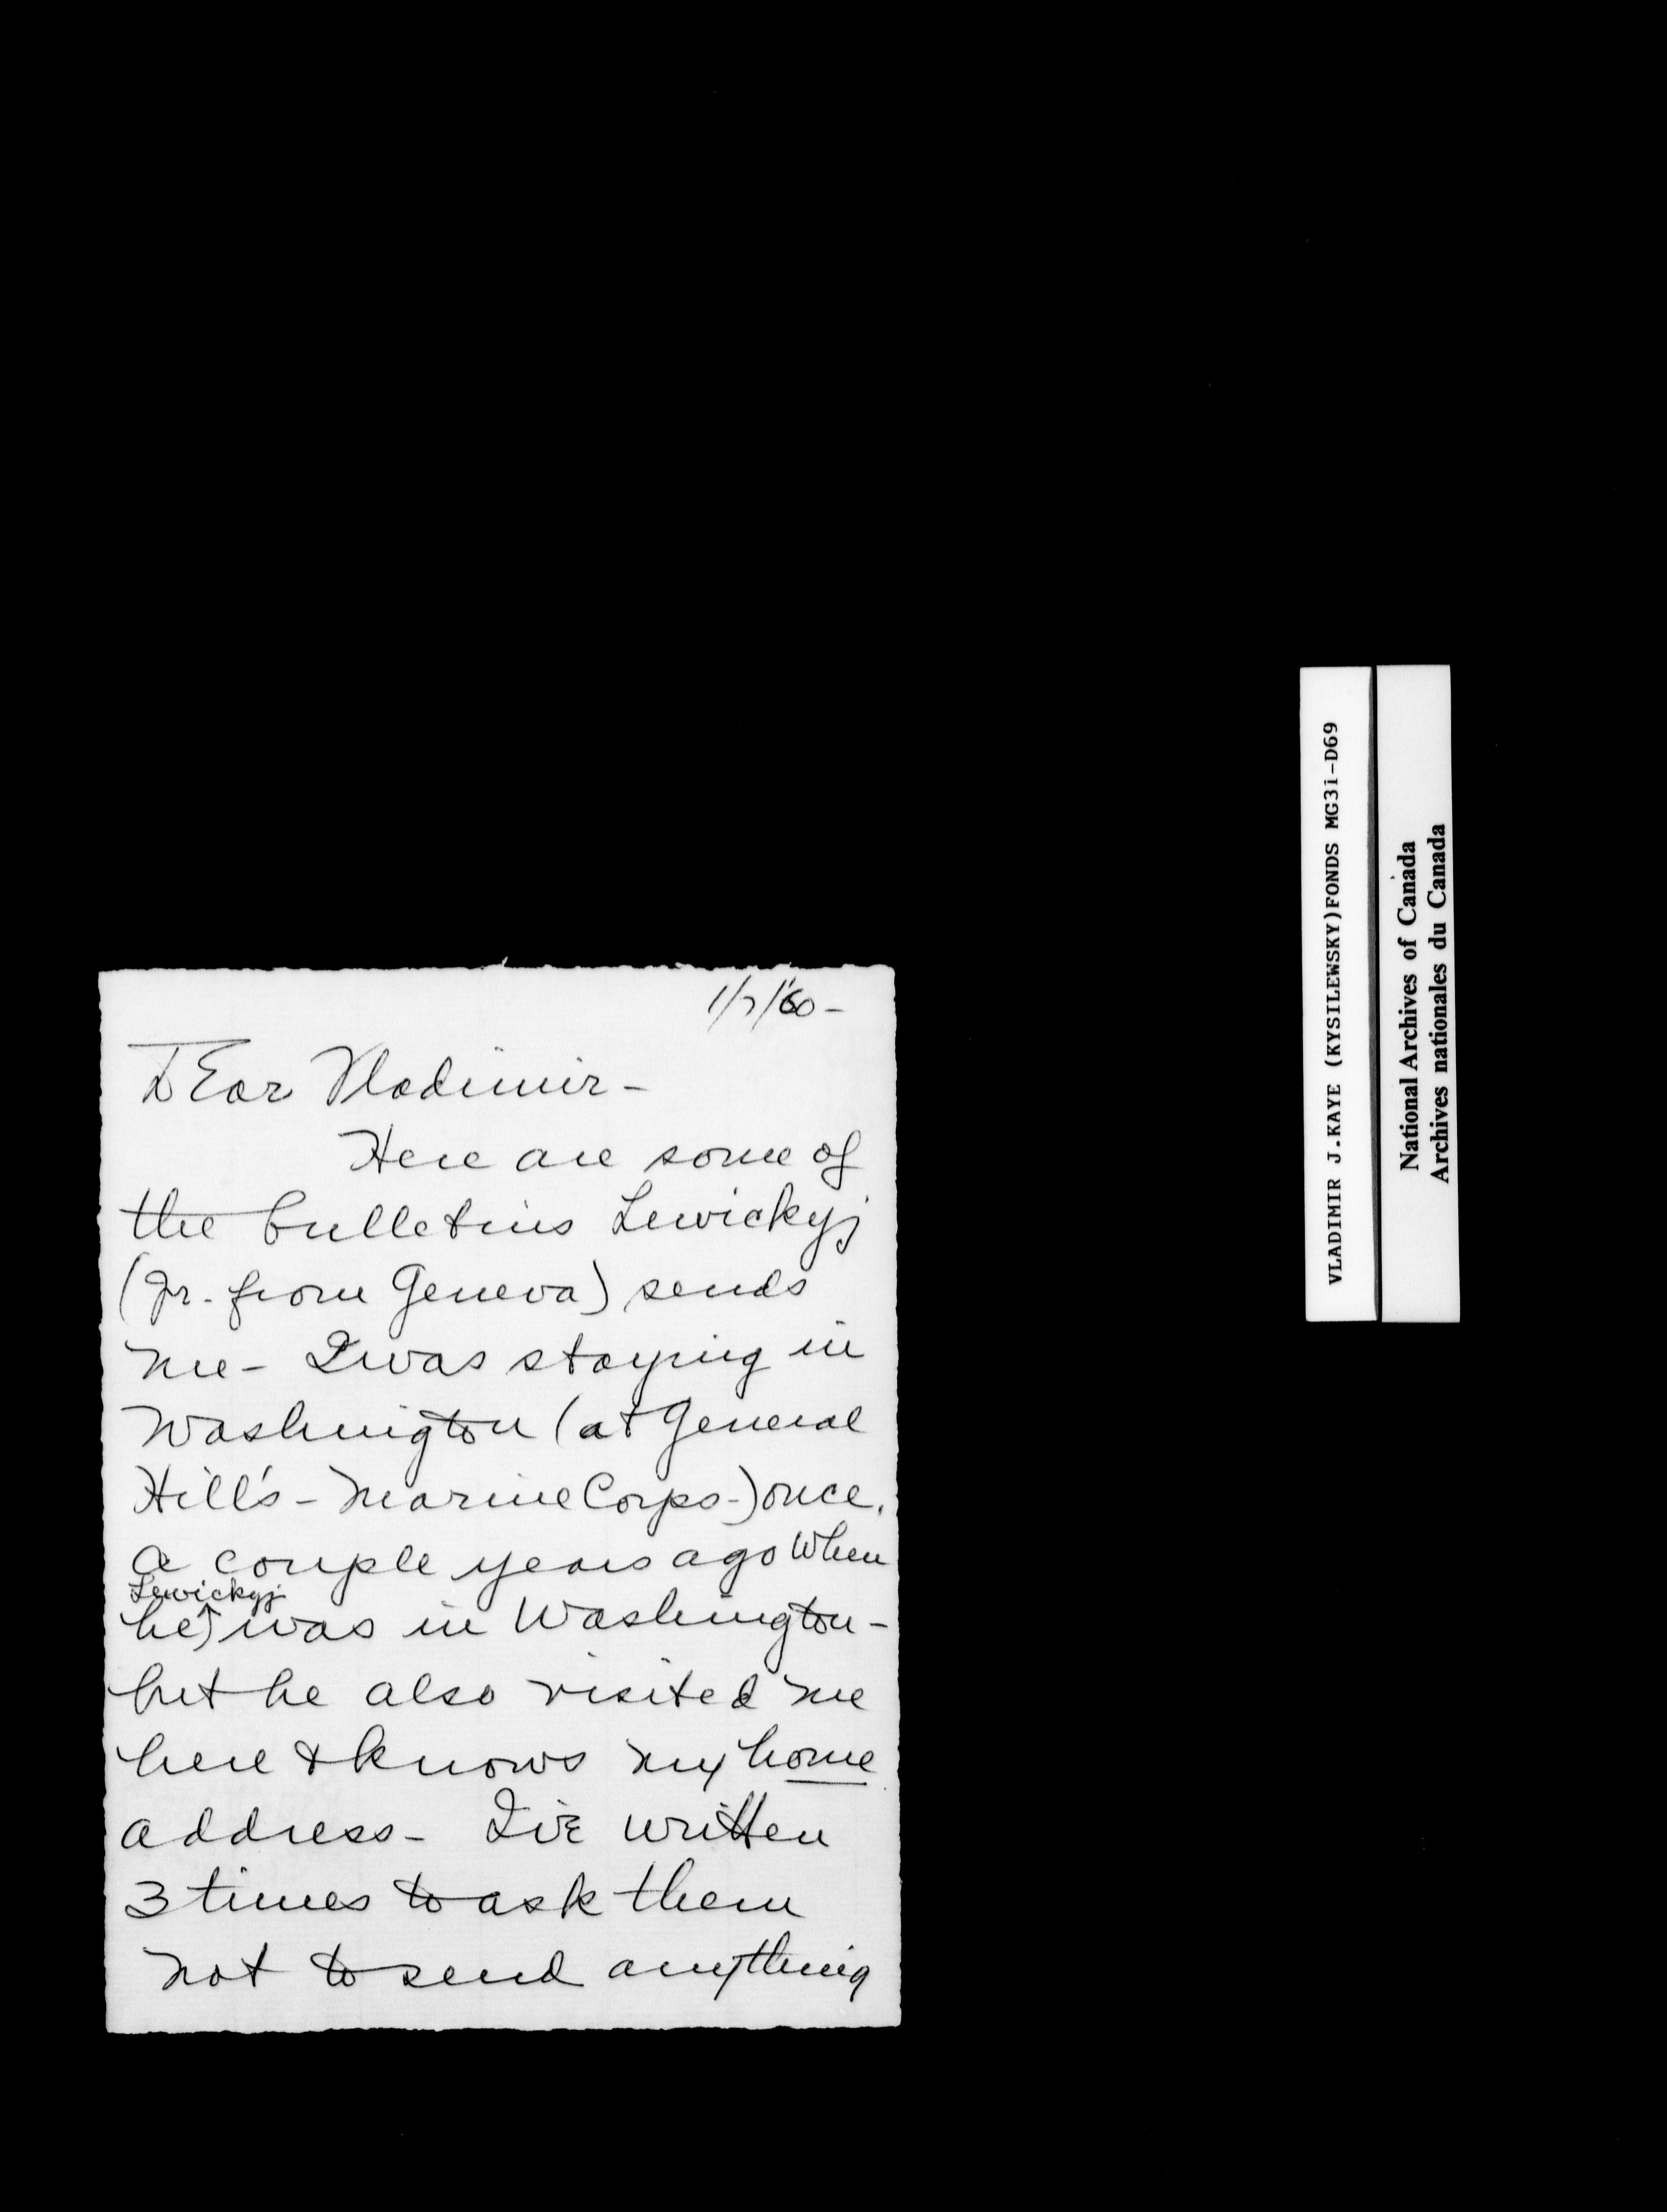 1/7/'60 -
Dear Vladimir -
Here are some of
the bulletins Lewickyj
(Jr. from Geneva) sends
me - I was staying in
Washington (at General
Hill's - Marine Corps -) once,
a couple years ago when
Lewickyj
he was in Washington -
but he also visited me
here & knows my home
address - I've written
3 times to ask them
not to send anything
VLADIMIR J.KAYE (KYSILEWSKY)FONDS MG31-D69
National Archives of Canada
Archives nationales du Canada